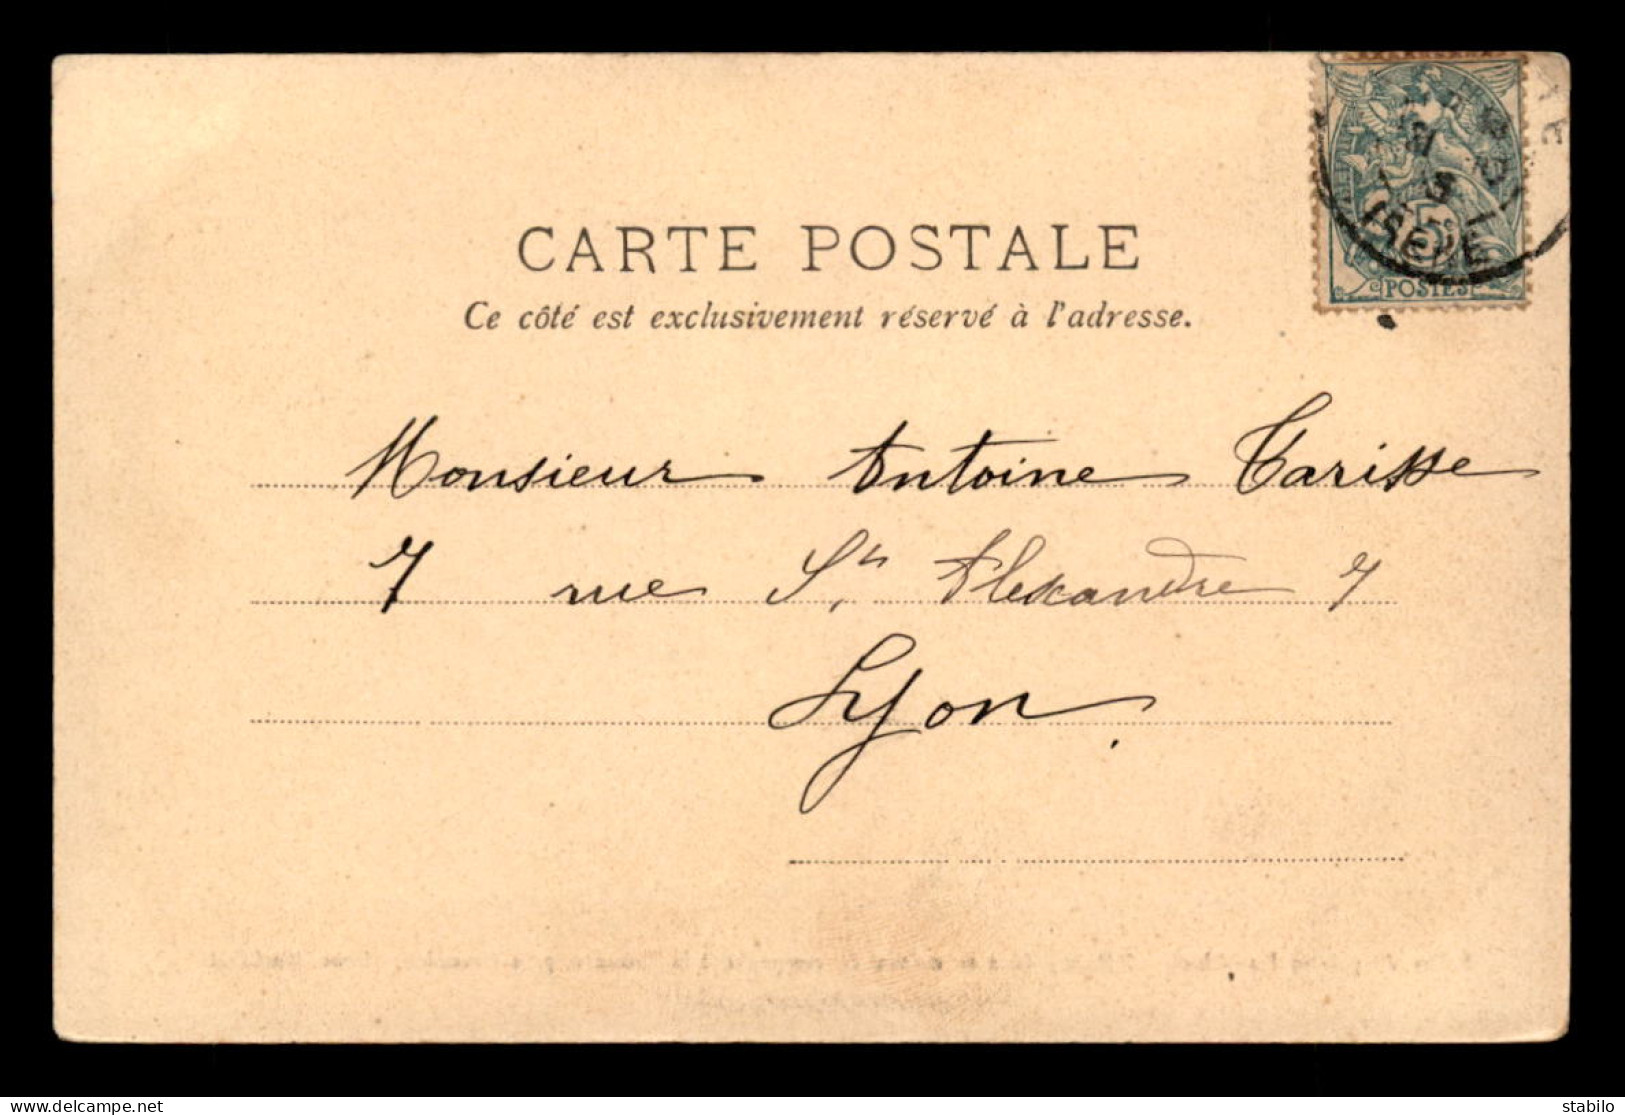 CARTE POSTALE
Ce côté est exclusivement réservé à l'adresse.
5c
POSTES
ISERE
Monsieur Antoine Tarisse
7 rue St. Alexandre 7
Lyon.
© delcampe.net
stabilo